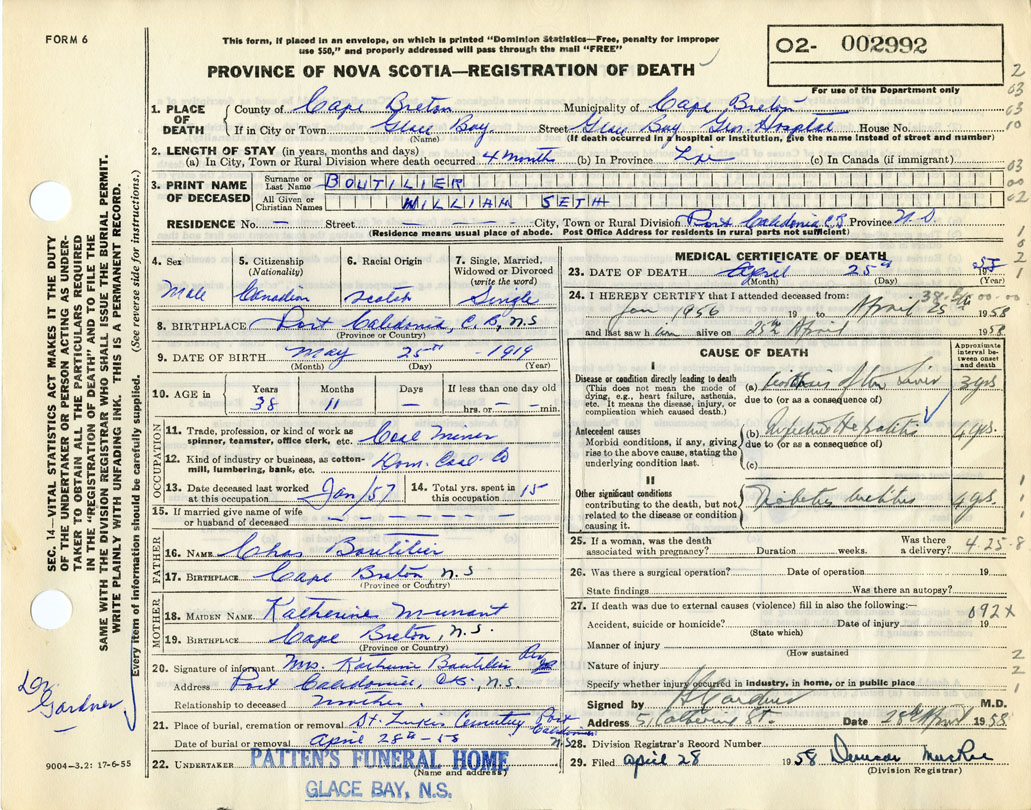 FORM 6
This form, if placed in an envelope, on which is printed "Dominion Statistics—Free, penalty for improper
use $50," and properly addressed will pass through the mail "FREE"
PROVINCE OF NOVA SCOTIA—REGISTRATION OF DEATH
02- 002992
For use of the Department only
1. PLACE OF DEATH
County of Cape Breton Municipality of Cape Breton
If in City or Town Glace Bay Street Glace Bay Gen. Hospital House No.
(Name) (If death occurred in a hospital or institution, give the name instead of street and number)
2. LENGTH OF STAY (in years, months and days)
(a) In City, Town or Rural Division where death occurred 4 months (b) In Province Life (c) In Canada (if immigrant)
3. PRINT NAME OF DECEASED
Surname or Last Name BOUTILIER
All Given or Christian Names WILLIAM SETH
RESIDENCE No. — Street — City, Town or Rural Division Port Caledonia C.B. Province N.S.
(Residence means usual place of abode. Post Office Address for residents in rural parts not sufficient)
4. Sex
Male
5. Citizenship (Nationality)
Canadian
6. Racial Origin
Scotch
7. Single, Married, Widowed or Divorced (write the word)
Single
8. BIRTHPLACE Port Caledonia, C.B, N.S
(Province or Country)
9. DATE OF BIRTH May 25TH - 1919
(Month) (Day) (Year)
10. AGE in Years 38 Months 11 Days If less than one day old hrs. or — min.
OCCUPATION
11. Trade, profession, or kind of work as spinner, teamster, office clerk, etc. Coal Miner
12. Kind of industry or business, as cotton-mill, lumbering, bank, etc. Dom. Coal Co
13. Date deceased last worked at this occupation Jan/57
14. Total yrs. spent in this occupation 15
15. If married give name of wife or husband of deceased — — — — — —
FATHER
16. NAME Chas Boutilier
17. BIRTHPLACE Cape Breton, N.S
(Province or Country)
MOTHER
18. MAIDEN NAME Katherine
19. BIRTHPLACE Cape Breton, N.S.
(Province or Country)
20. Signature of informant Mrs. Katherine Boutilier
Address Port Caledonia, C.B., N.S.
Relationship to deceased Mother.
21. Place of burial, cremation or removal St. Cemetery Port Caledonia N.S
Date of burial or removal April 28th - 58
22. UNDERTAKER PATTEN'S FUNERAL HOME
(Name and address)
GLACE BAY, N.S.
MEDICAL CERTIFICATE OF DEATH
23. DATE OF DEATH April 25th 19
(Month) (Day) (Year)
24. I HEREBY CERTIFY that I attended deceased from:
Jan 1956 19 to April 25th 1958
and last saw him alive on 25th April 1958
CAUSE OF DEATH
Approximate interval between onset and death
I
Disease or condition directly leading to death
(This does not mean the mode of dying, e.g., heart failure, asthenia, etc. It means the disease, injury, or complication which caused death.)
(a) Cirrhosis of the Liver 3 yrs
due to (or as a consequence of)
Antecedent causes
Morbid conditions, if any, giving rise to the above cause, stating the underlying condition last.
(b) Infective Hepatitis 4 yrs.
due to (or as a consequence of)
(c)
II
Other significant conditions
contributing to the death, but not related to the disease or condition causing it.
Diabetes Mellitus 4 yrs.
25. If a woman, was the death associated with pregnancy? Duration weeks. Was there a delivery?
4 25-8
26. Was there a surgical operation? Date of operation 19
State findings Was there an autopsy?
27. If death was due to external causes (violence) fill in also the following:—
092X
Accident, suicide or homicide? Date of injury 19
(State which)
Manner of injury
(How sustained
Nature of injury
Specify whether injury occurred in industry, in home, or in public place
Signed by H Gardner M.D.
Address 51 Catherine St. Date 28th April 1958.
28. Division Registrar's Record Number
29. Filed April 28 1958 Duncan MacRae
(Division Registrar)
SEC. 14—VITAL STATISTICS ACT MAKES IT THE DUTY
OF THE UNDERTAKER OR PERSON ACTING AS UNDER-
TAKER TO OBTAIN ALL THE PARTICULARS REQUIRED
IN THE "REGISTRATION OF DEATH" AND TO FILE THE
SAME WITH THE DIVISION REGISTRAR WHO SHALL ISSUE THE BURIAL PERMIT.
WRITE PLAINLY WITH UNFADING INK. THIS IS A PERMANENT RECORD.
Every item of information should be carefully supplied. (See reverse side for instructions.)
Dr. Gardner
9004—3.2: 17-6-55